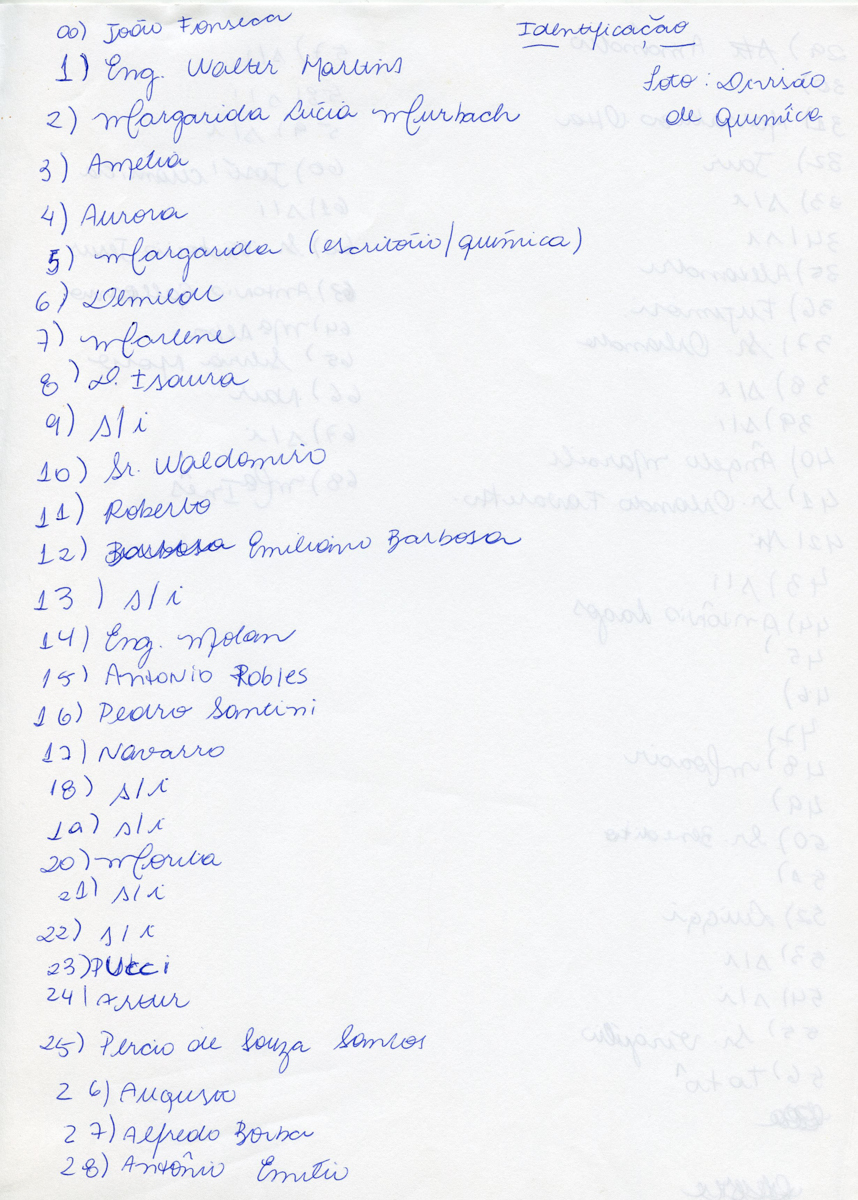 00) João Fonseca
Identificação
1) Eng. Walter Martins
Foto: Divisão
de Química
2) Margarida Lúcia Murbach
3) Amélia
4) Aurora
5) Margarida (escritório/química)
6) Demilde
7) Marlene
8) D. Isaura
9) s/i
10) Sr. Waldomiro
11) Roberto
12) Barbosa Emiliano Barbosa
13) s/i
14) Eng. Molan
15) Antonio Robles
16) Pedro Santini
17) Navarro
18) s/i
19) s/i
20) Morita
21) s/i
22) s/i
23) Pucci
24) Artur
25) Percio de Souza Santos
26) Augusto
27) Alfredo Borba
28) Antônio Emílio